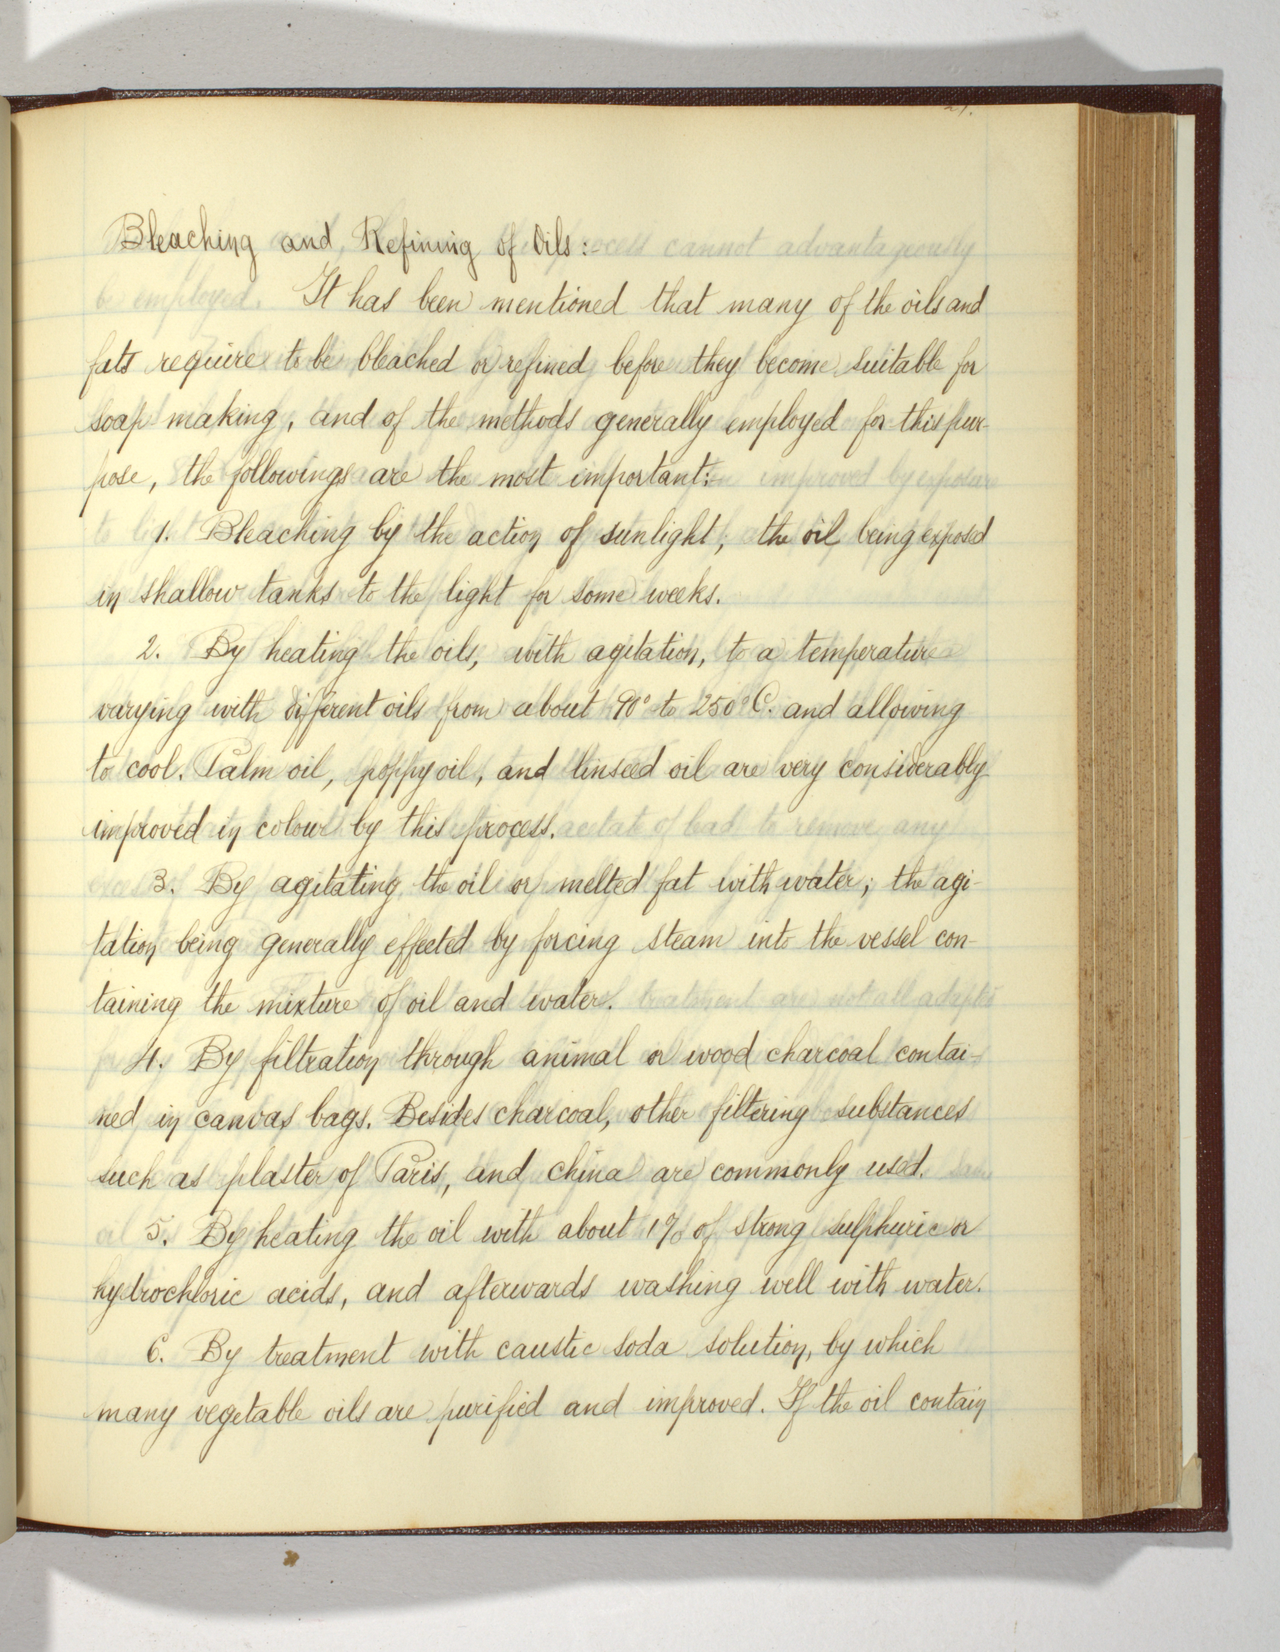 Bleaching and Refining of Oils:-
It has been mentioned that many of the oils and
fats require to be bleached or refined before they become suitable for
soap making, and of the methods generally employed for this pur-
pose, the followings are the most important:-
1. Bleaching by the action of sunlight, the oil being exposed
in shallow tanks to the light for some weeks.
2. By heating the oils, with agitation, to a temperature
varying with different oils from about 90° to 250° C. and allowing
to cool. Palm oil, poppy oil, and linseed oil are very considerably
improved in colour by this process.
3. By agitating the oil or melted fat with water; the agi-
tation being generally effected by forcing steam into the vessel con-
taining the mixture of oil and water.
4. By filtration through animal or wood charcoal contai-
ned in canvas bags. Besides charcoal, other filtering substances
such as plaster of Paris, and china are commonly used.
5. By heating the oil with about 1% of strong sulphuric or
hydrochloric acids, and afterwards washing well with water.
6. By treatment with caustic soda solution, by which
many vegetable oils are purified and improved. If the oil contain